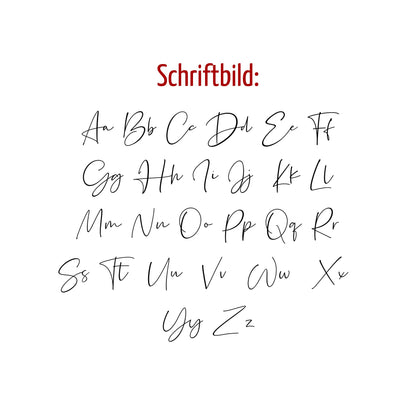 Schriftbild:
Aa Bb Cc Dd Ee Ff
Gg Hh Ii Jj Kk Ll
Mm Nn Oo Pp Qq Rr
Ss Tt Uu Vv Ww Xx
Yy Zz